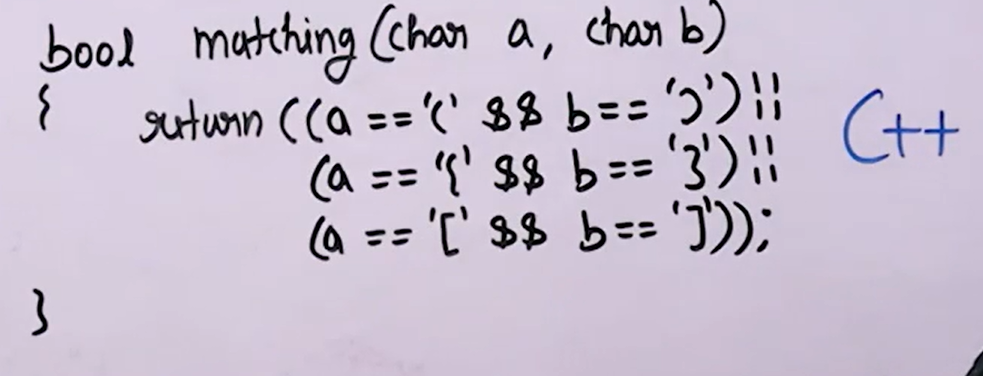 bool matching (char a, char b)
{ return ((a == '(' && b == ')') ||
(a == '{' && b == '}') ||
(a == '[' && b == ']'));
}
C++